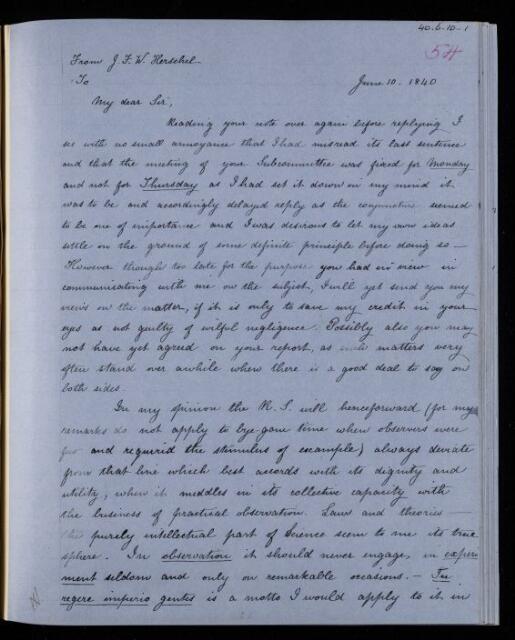 40.6.10-1
54
From J. F. W. Herschel
To
June 10. 1840
My dear Sir,
Reading your note over again before replying I
see with no small annoyance that I had misread its last sentence
and that the meeting of your Subcommittee was fixed for Monday
and not for Thursday as I had set it down in my mind it
was to be and accordingly delayed reply as the conjuncture seemed
to be one of importance and I was desirous to let my own ideas
settle on the ground of some definite principle before doing so —
However though too late for the purpose you had in view in
communicating with me on the subject, I will yet send you my
views on the matter, if it is only to save my credit in your
eyes as not guilty of wilful negligence. Possibly also you may
not have yet agreed on your report, as such matters very
often stand over awhile where there is a good deal to say on
both sides.
In my opinion the R. S. will henceforward (for my
remarks do not apply to bye-gone time when observers were
few and required the stimulus of example) always deviate
from that line which best accords with its dignity and
utility, when it meddles in its collective capacity with
the business of practical observation. Laws and theories —
the purely intellectual part of Science seem to me its true
sphere. In observation it should never engage, in experi
ment seldom and only on remarkable occasions. — Tu
regere imperio gentes is a motto I would apply to it in